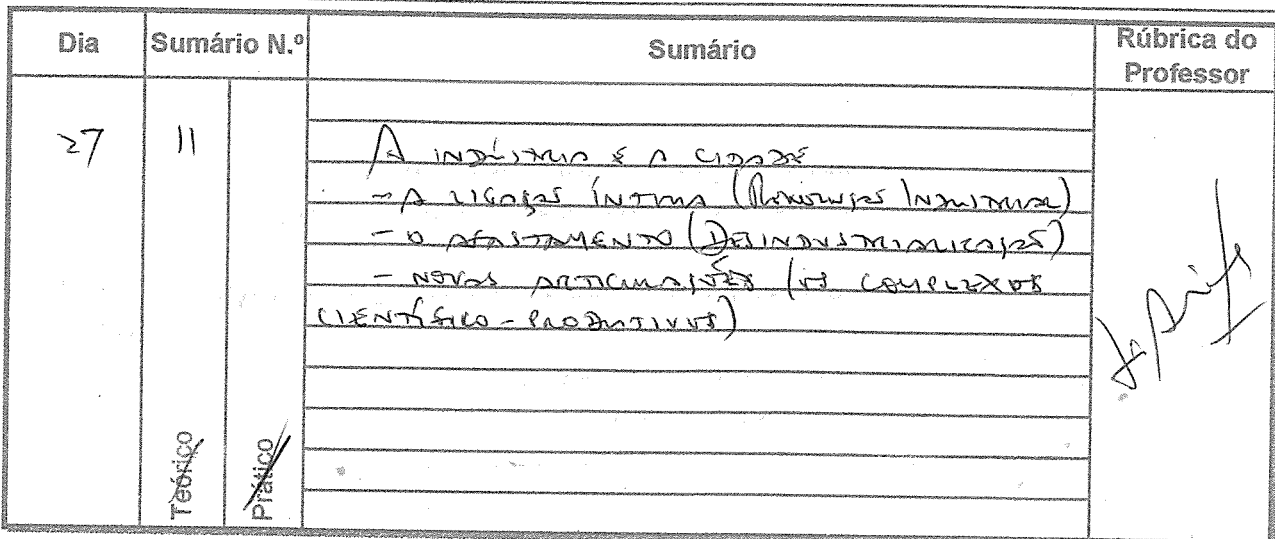 Dia Sumário N.º Sumário Rúbrica do Professor
27 11 A INDÚSTRIA E A CIDADE
- A LIGAÇÃO ÍNTIMA (REVOLUÇÃO INDUSTRIAL)
- O AFASTAMENTO (DESINDUSTRIALIZAÇÃO)
- NOVAS ARTICULAÇÕES (OS COMPLEXOS
CIENTÍFICO-PRODUTIVOS)
Teórico
Prático